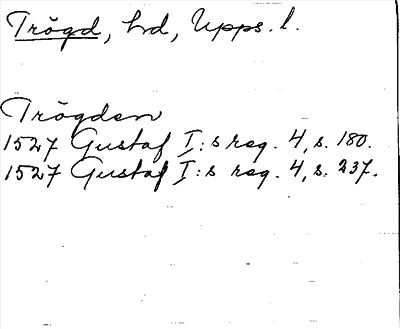 Trögd, hd, Upps. l.
Trögden
1527 Gustaf I:s reg. 4, s. 180.
1527 Gustaf I:s reg. 4, s. 237.